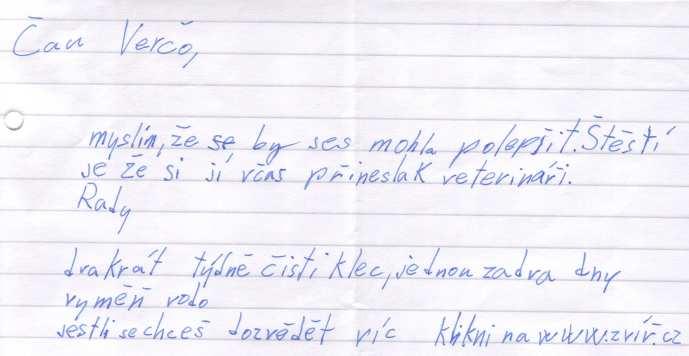 Čau Verčo,
myslím, že se by ses mohla polepšit. Štěstí
je že si jí včas přineslak veterináři.
Rady
dvakrát týdně čisti klec, jednou za dva dny
vyměň vodo
jestli se chceš dozvědět víc klikni na www.zvíř.cz